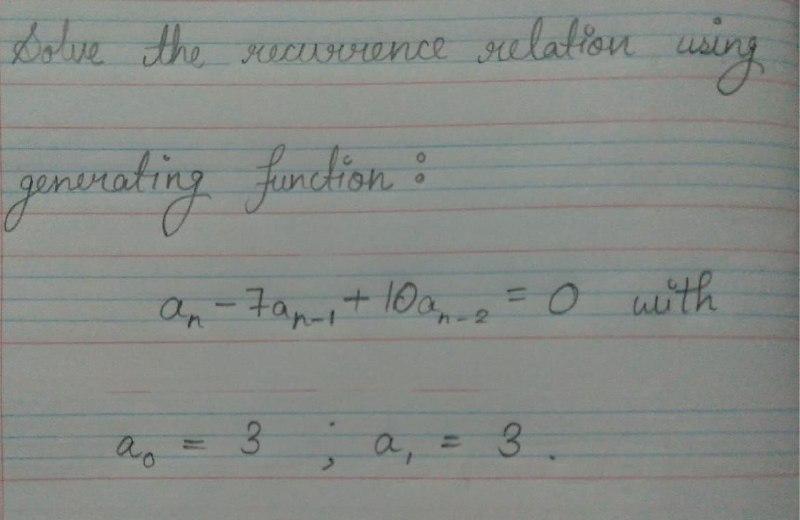 Solve the recurrence relation using
generating function :
aₙ - 7aₙ₋₁ + 10aₙ₋₂ = 0 with
a₀ = 3 ; a₁ = 3 .